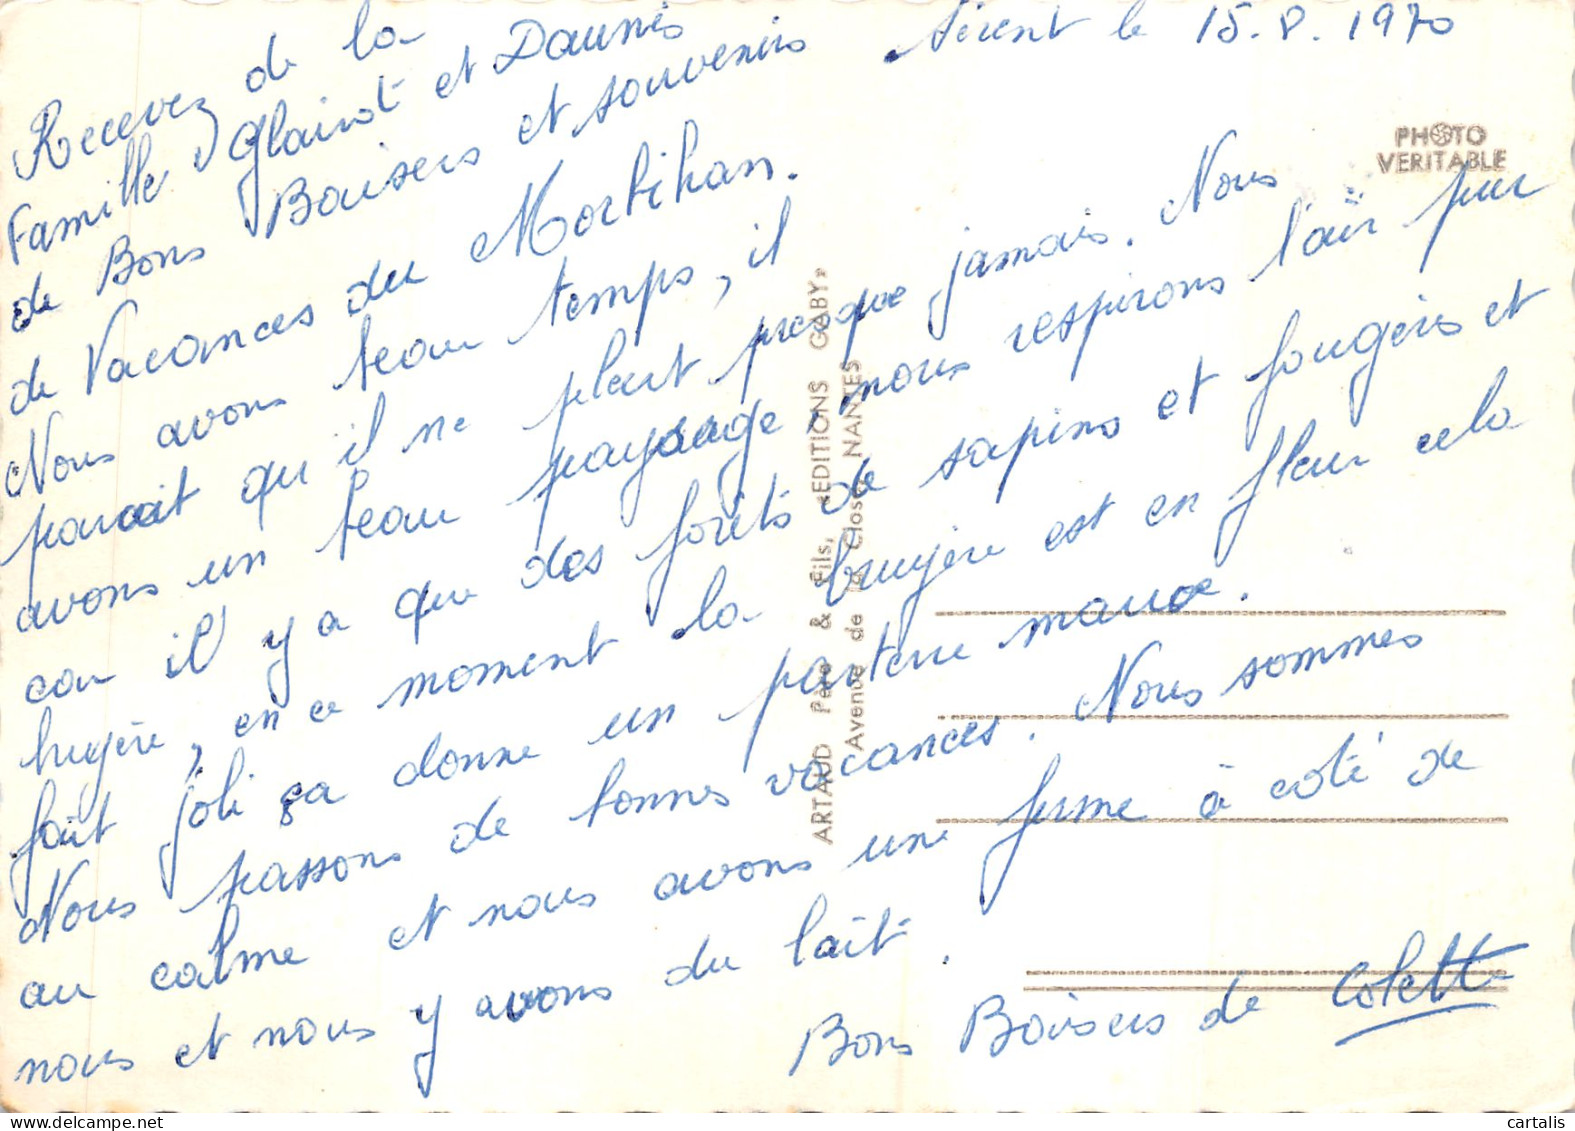 Sérent le 15.8.1970
Recevez de la
Famille Glairot et Daunis
de Bons Baisers et souvenirs
de Vacances du Morbihan.
Nous avons beau temps, il
parait qu'il ne pleut presque jamais. Nous
avons un beau paysage, nous respirons l'air pur
car il y a que des forêts de sapins et fougères et
bruyère, en ce moment la bruyère est en fleur cela
fait joli ça donne un parterre mauve.
Nous passons de bonnes vacances. Nous sommes
au calme et nous avons une ferme à coté de
nous et nous y avons du lait.
Bons Baisers de Colette
PHOTO
VERITABLE
ARTAUD Père & Fils, «EDITIONS GABY»
Avenue de la Close NANTES
cartalis.com